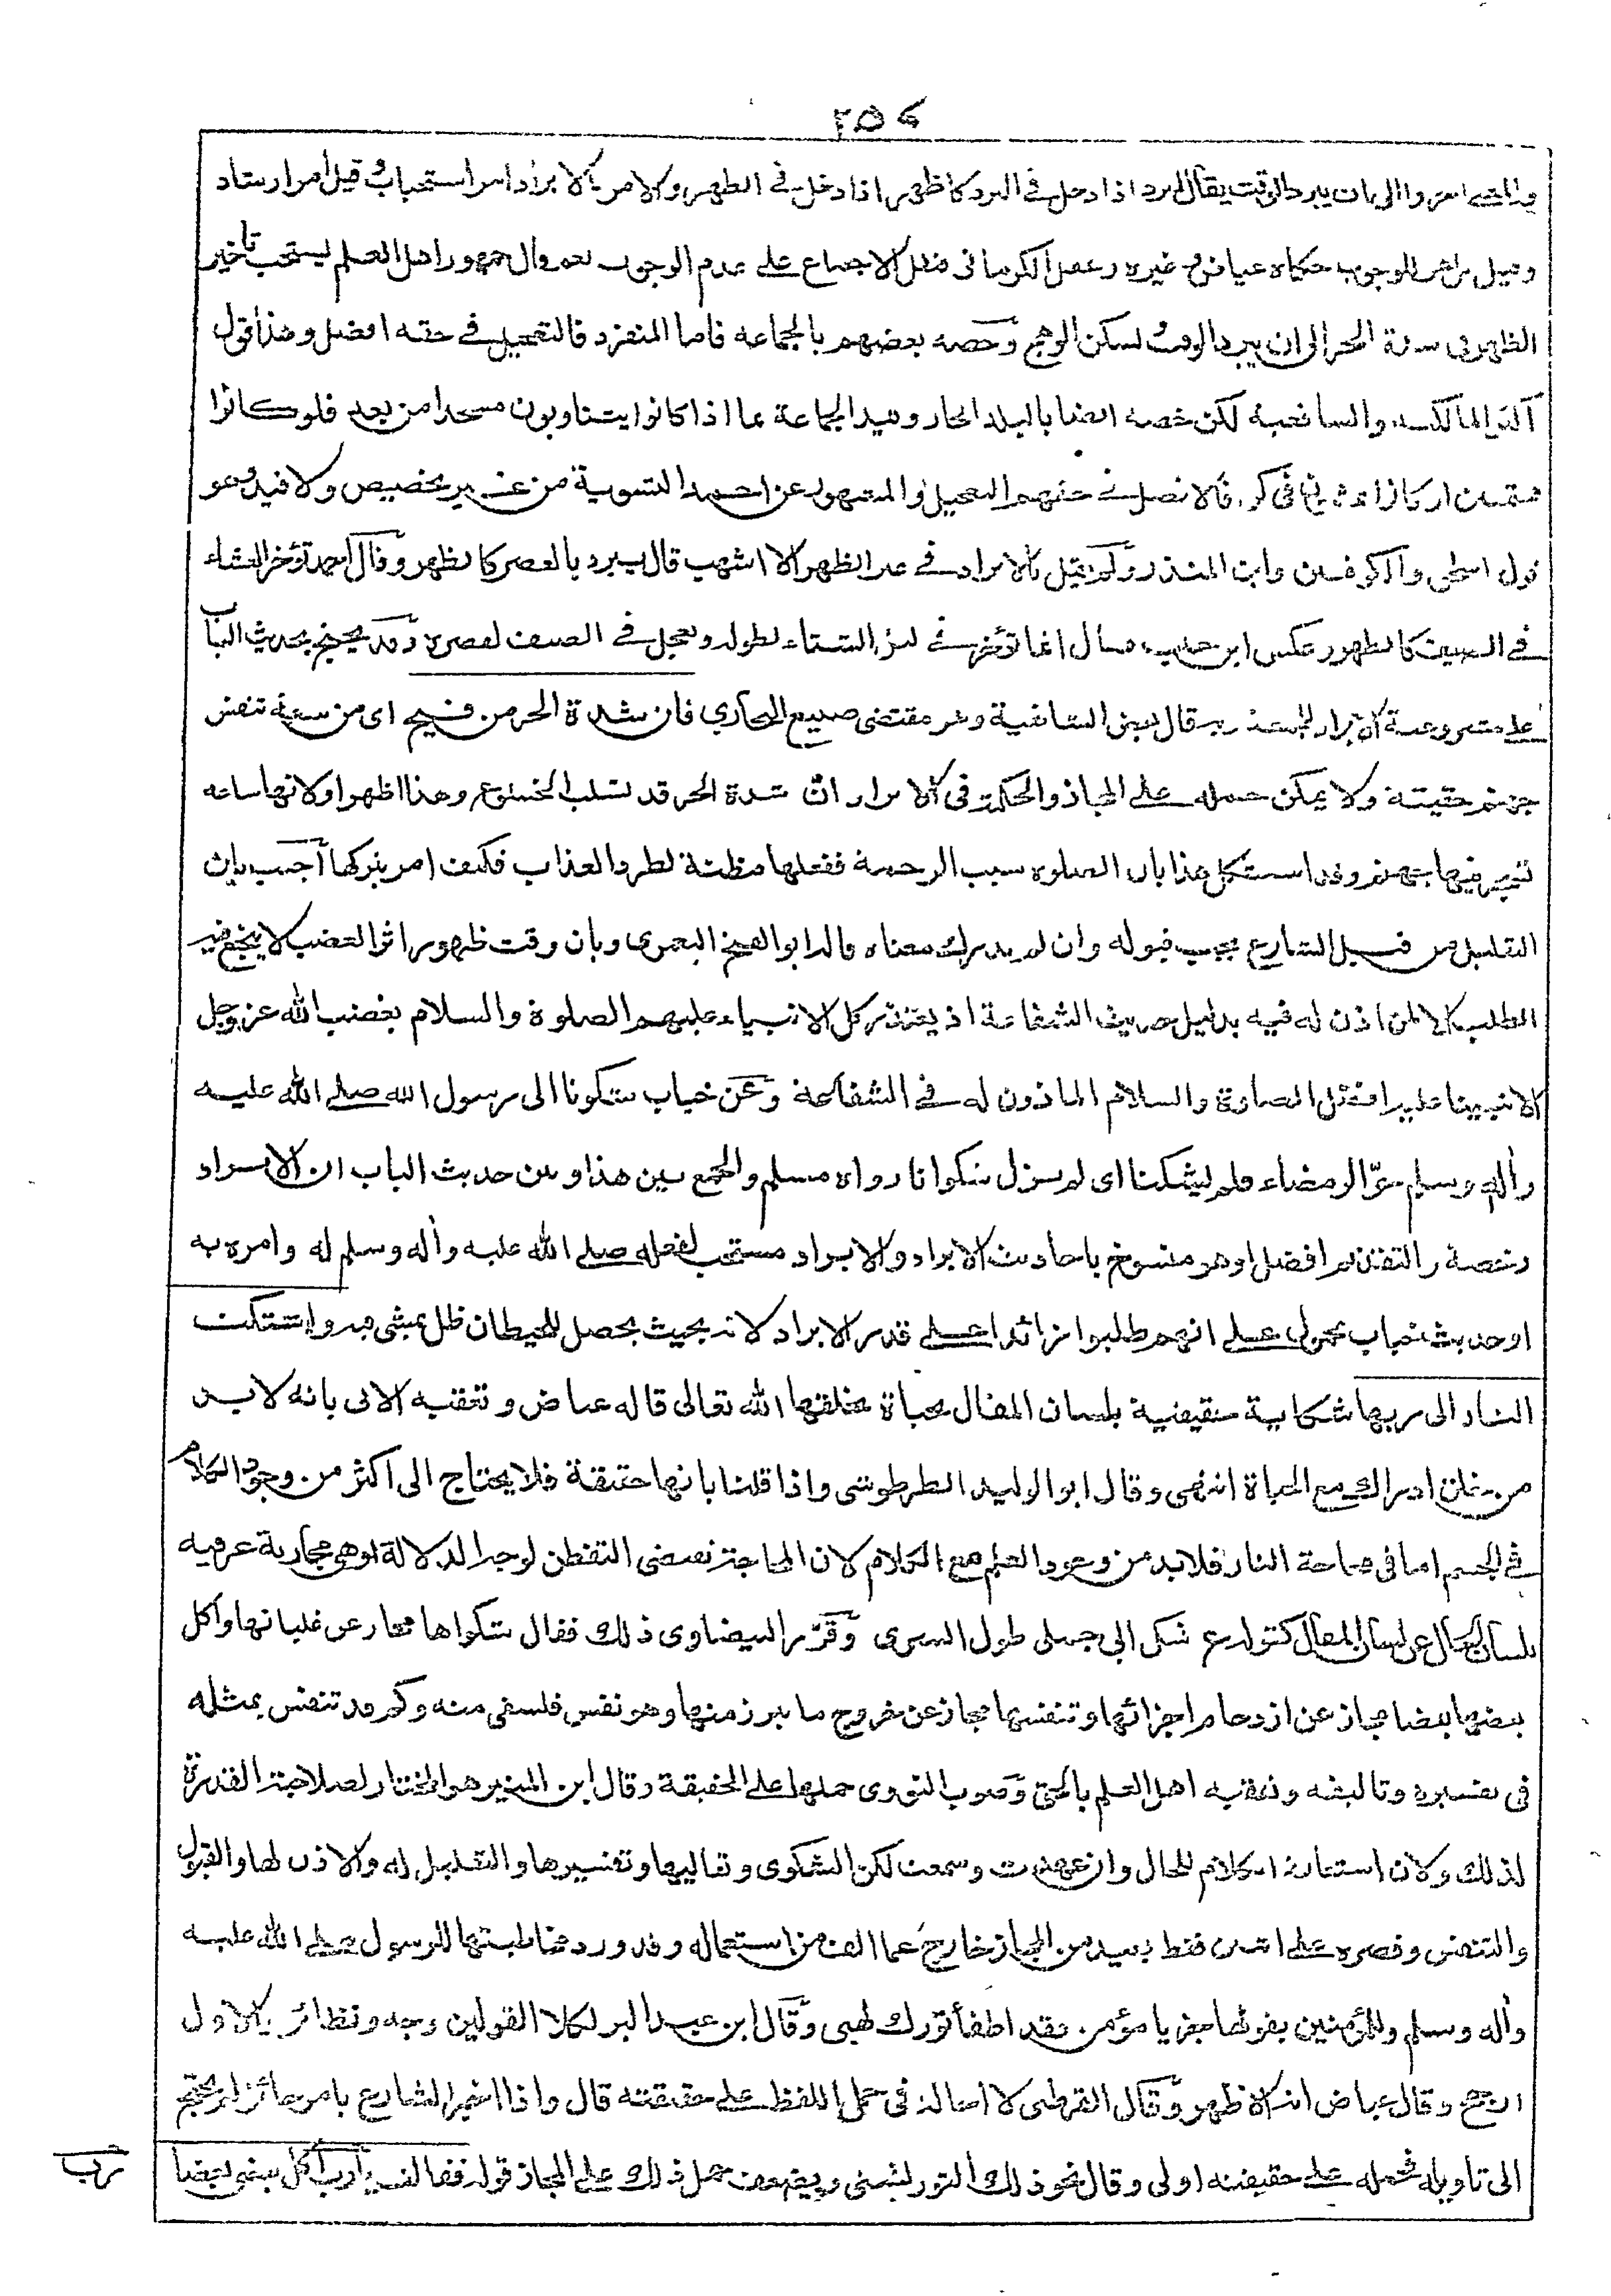 ٢٥٤
والمعنى اخروا الى ان يبرد الوقت يقال ابرد اذا دخل فى البرد كاظهر اذا دخل فى الظهر والامر بالابراد امر استحباب وقيل امر ارشاد
وقيل بل هو للوجوب حكاه عياض وغيره وغفل الكرمانى فنقل الاجماع على عدم الوجوب نعم قال جمهور اهل العلم يستحب تاخير
الظهر فى شدة الحر الى ان يبرد الوقت لسكن الوهج وخصه بعضهم بالجماعة فاما المنفرد فالتعجيل فى حقه افضل وهذا قول
اكثر المالكية والشافعية لكن خصه ايضا بالبلد الحار وقيد الجماعة بما اذا كانوا يتناوبون مسجدا من بعد فلو كانوا
مجتمعين او كانوا يمشون فى كن فالافضل فى حقهم التعجيل والمشهور عن احمد التسوية من غير تخصيص ولا قيد وهو
قول اسحق والكوفيين وابن المنذر ولم يقل بالابراد فى غير الظهر الا اشهب قال يبرد بالعصر كالظهر وقال احمد تؤخر العشاء
فى الصيف كالظهر وعكس ابن حبيب فقال انما تؤخر فى ليل الشتاء لطوله وتعجل فى الصيف لقصره وقد يحتج بحديث الباب
على مشروعية الابراد للجمعة وبه قال بعض الشافعية وهو مقتضى صنيع البخاري فان شدة الحر من فيح اى من سعة تنفس
جهنم حقيقة ولا يمكن حمله على المجاز والحكمة فى الابراد ان شدة الحر قد تسلب الخشوع وهذا اظهر او لانها ساعة
تسجر فيها جهنم وقد استشكل هذا بان الصلوة سبب الرحمة ففعلها مظنة لطرد العذاب فكيف امر بتركها اجيب بان
التعليل من قبل الشارع يجب قبوله وان لم يدرك معناه قاله ابو الفتح اليعمرى وبان وقت ظهور اثر الغضب لا ينجع فيه
الطلب الا لمن اذن له فيه بدليل حديث الشفاعة اذ يعتذر كل الانبياء عليهم الصلوة والسلام بغضب الله عز وجل
الا نبينا عليه افضل الصلوة والسلام الماذون له فى الشفاعة وعن خباب شكونا الى رسول الله صلى الله عليه
وأله وسلم حر الرمضاء فلم يشكنا اى لم يزل شكوانا رواه مسلم والجمع بين هذا وبين حديث الباب ان الابراد
رخصة والتقديم افضل او هو منسوخ باحاديث الابراد والابراد مستحب لفعله صلى الله عليه وأله وسلم له وامره به
او حديث خباب محمول على انهم طلبوا زائدا على قدر الابراد لانه بحيث يحصل للحيطان ظل يمشى فيه واشتكت
النار الى ربها شكاية حقيقية بلسان المقال بحياة يخلقها الله تعالى قاله عياض وتعقبه الابى بانه لابد
من خلق ادراك مع الحياة انتهى وقال ابو الوليد الطرطوشى واذا قلنا بانها حقيقة فلا يحتاج الى اكثر من وجود الكلام
فى الجسم اما فى محاجة النار فلابد من وجود العلم مع الكلام لان المحاجة تقتضى التفطن لوجه الدلالة او هى مجازية عرفية
بلسان الحال عن لسان المقال كقوله ع شكى الى جملى طول السرى وقرر البيضاوى ذلك فقال شكواها مجاز عن غليانها واكل
بعضها بعضا مجاز عن ازدحام اجزائها وتنفسها مجاز عن خروج ما يبرز منها وهو نفس فلسفى منه وكم قد تنفس بمثله
فى تفسيره وتاليفه وتعقبه اهل العلم بالحق وصوب النووى حملها على الحقيقة وقال ابن المنير هو المختار لصلاحية القدرة
لذلك ولان استعارة الكلام للحال وان عهدت وسمعت لكن الشكوى وتعاليها وتفسيرها والتعليل له والاذن لها والقبول
والتنفس وقصره على اثنين فقط بعيد من المجاز خارج عما الف من استعماله وقد ورد مخاطبتها للرسول صلى الله عليه
وأله وسلم وللمؤمنين بقولها جز يا مؤمن فقد اطفأ نورك لهبى وقال ابن عبد البر لكلا القولين وجه ونظائر والاول
ارجح وقال عياض انه الاظهر وقال القرطبى لا احالة فى حمل اللفظ على حقيقته قال واذا اخبر الشارع بامر جائز لم يحتج
الى تاويله فحمله على حقيقته اولى وقال نحو ذلك التوربشتى ويضعف حمل ذلك على المجاز قوله فقالت يا رب اكل بعضى بعضا
رب